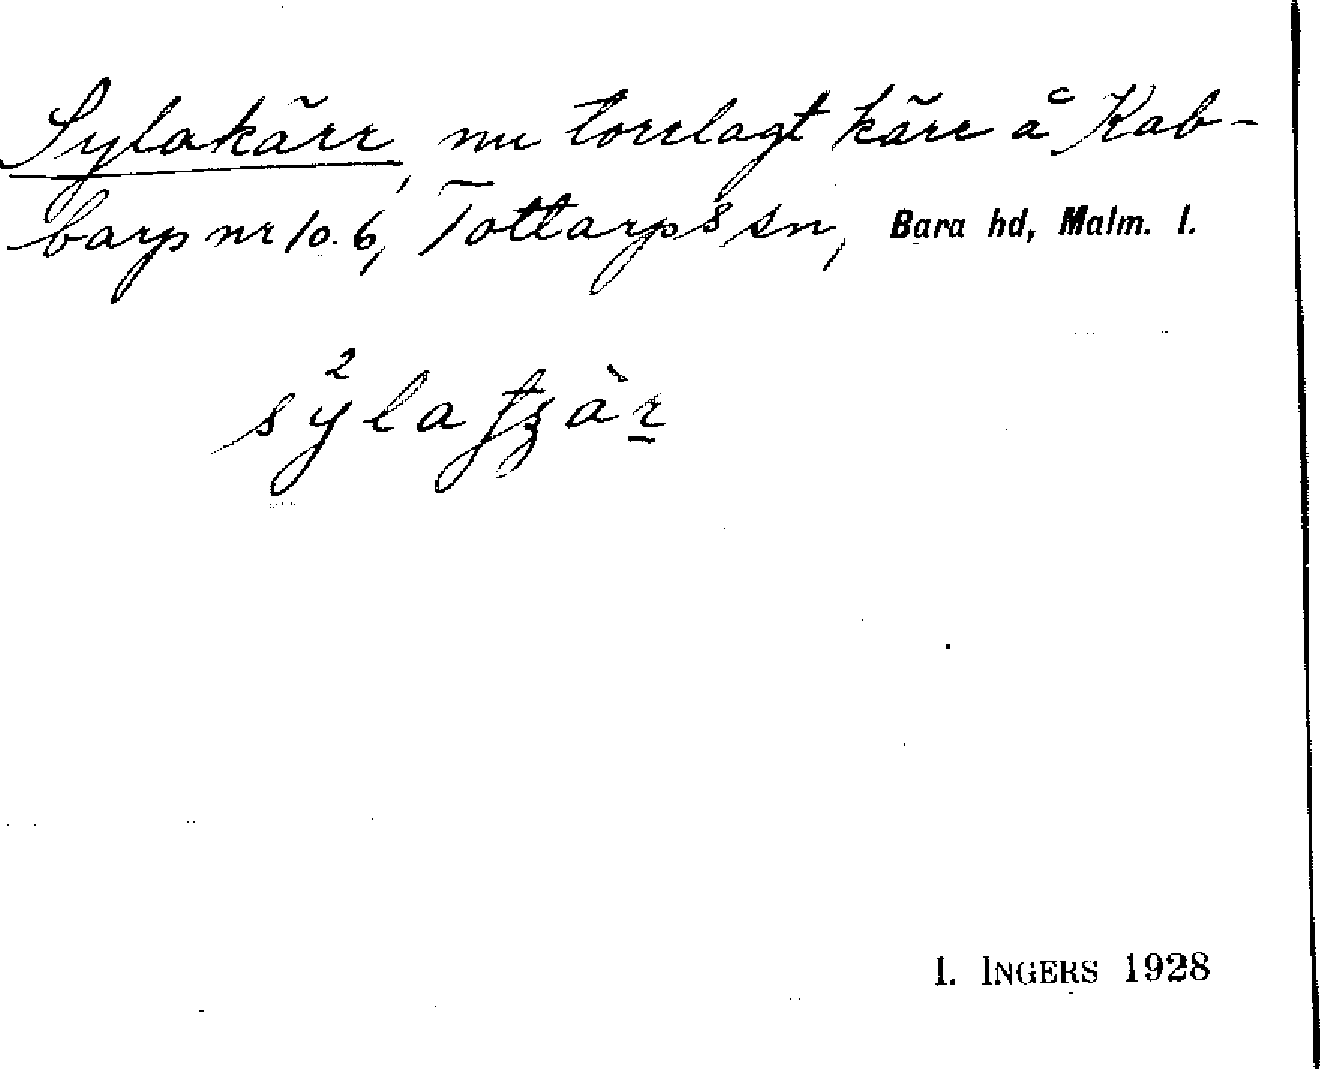 Sylakärr, nu torrlagt kärr å Kab-
barp nr 10.6, Tottarps sn, Bara hd, Malm. l.
I. INGERS 1928